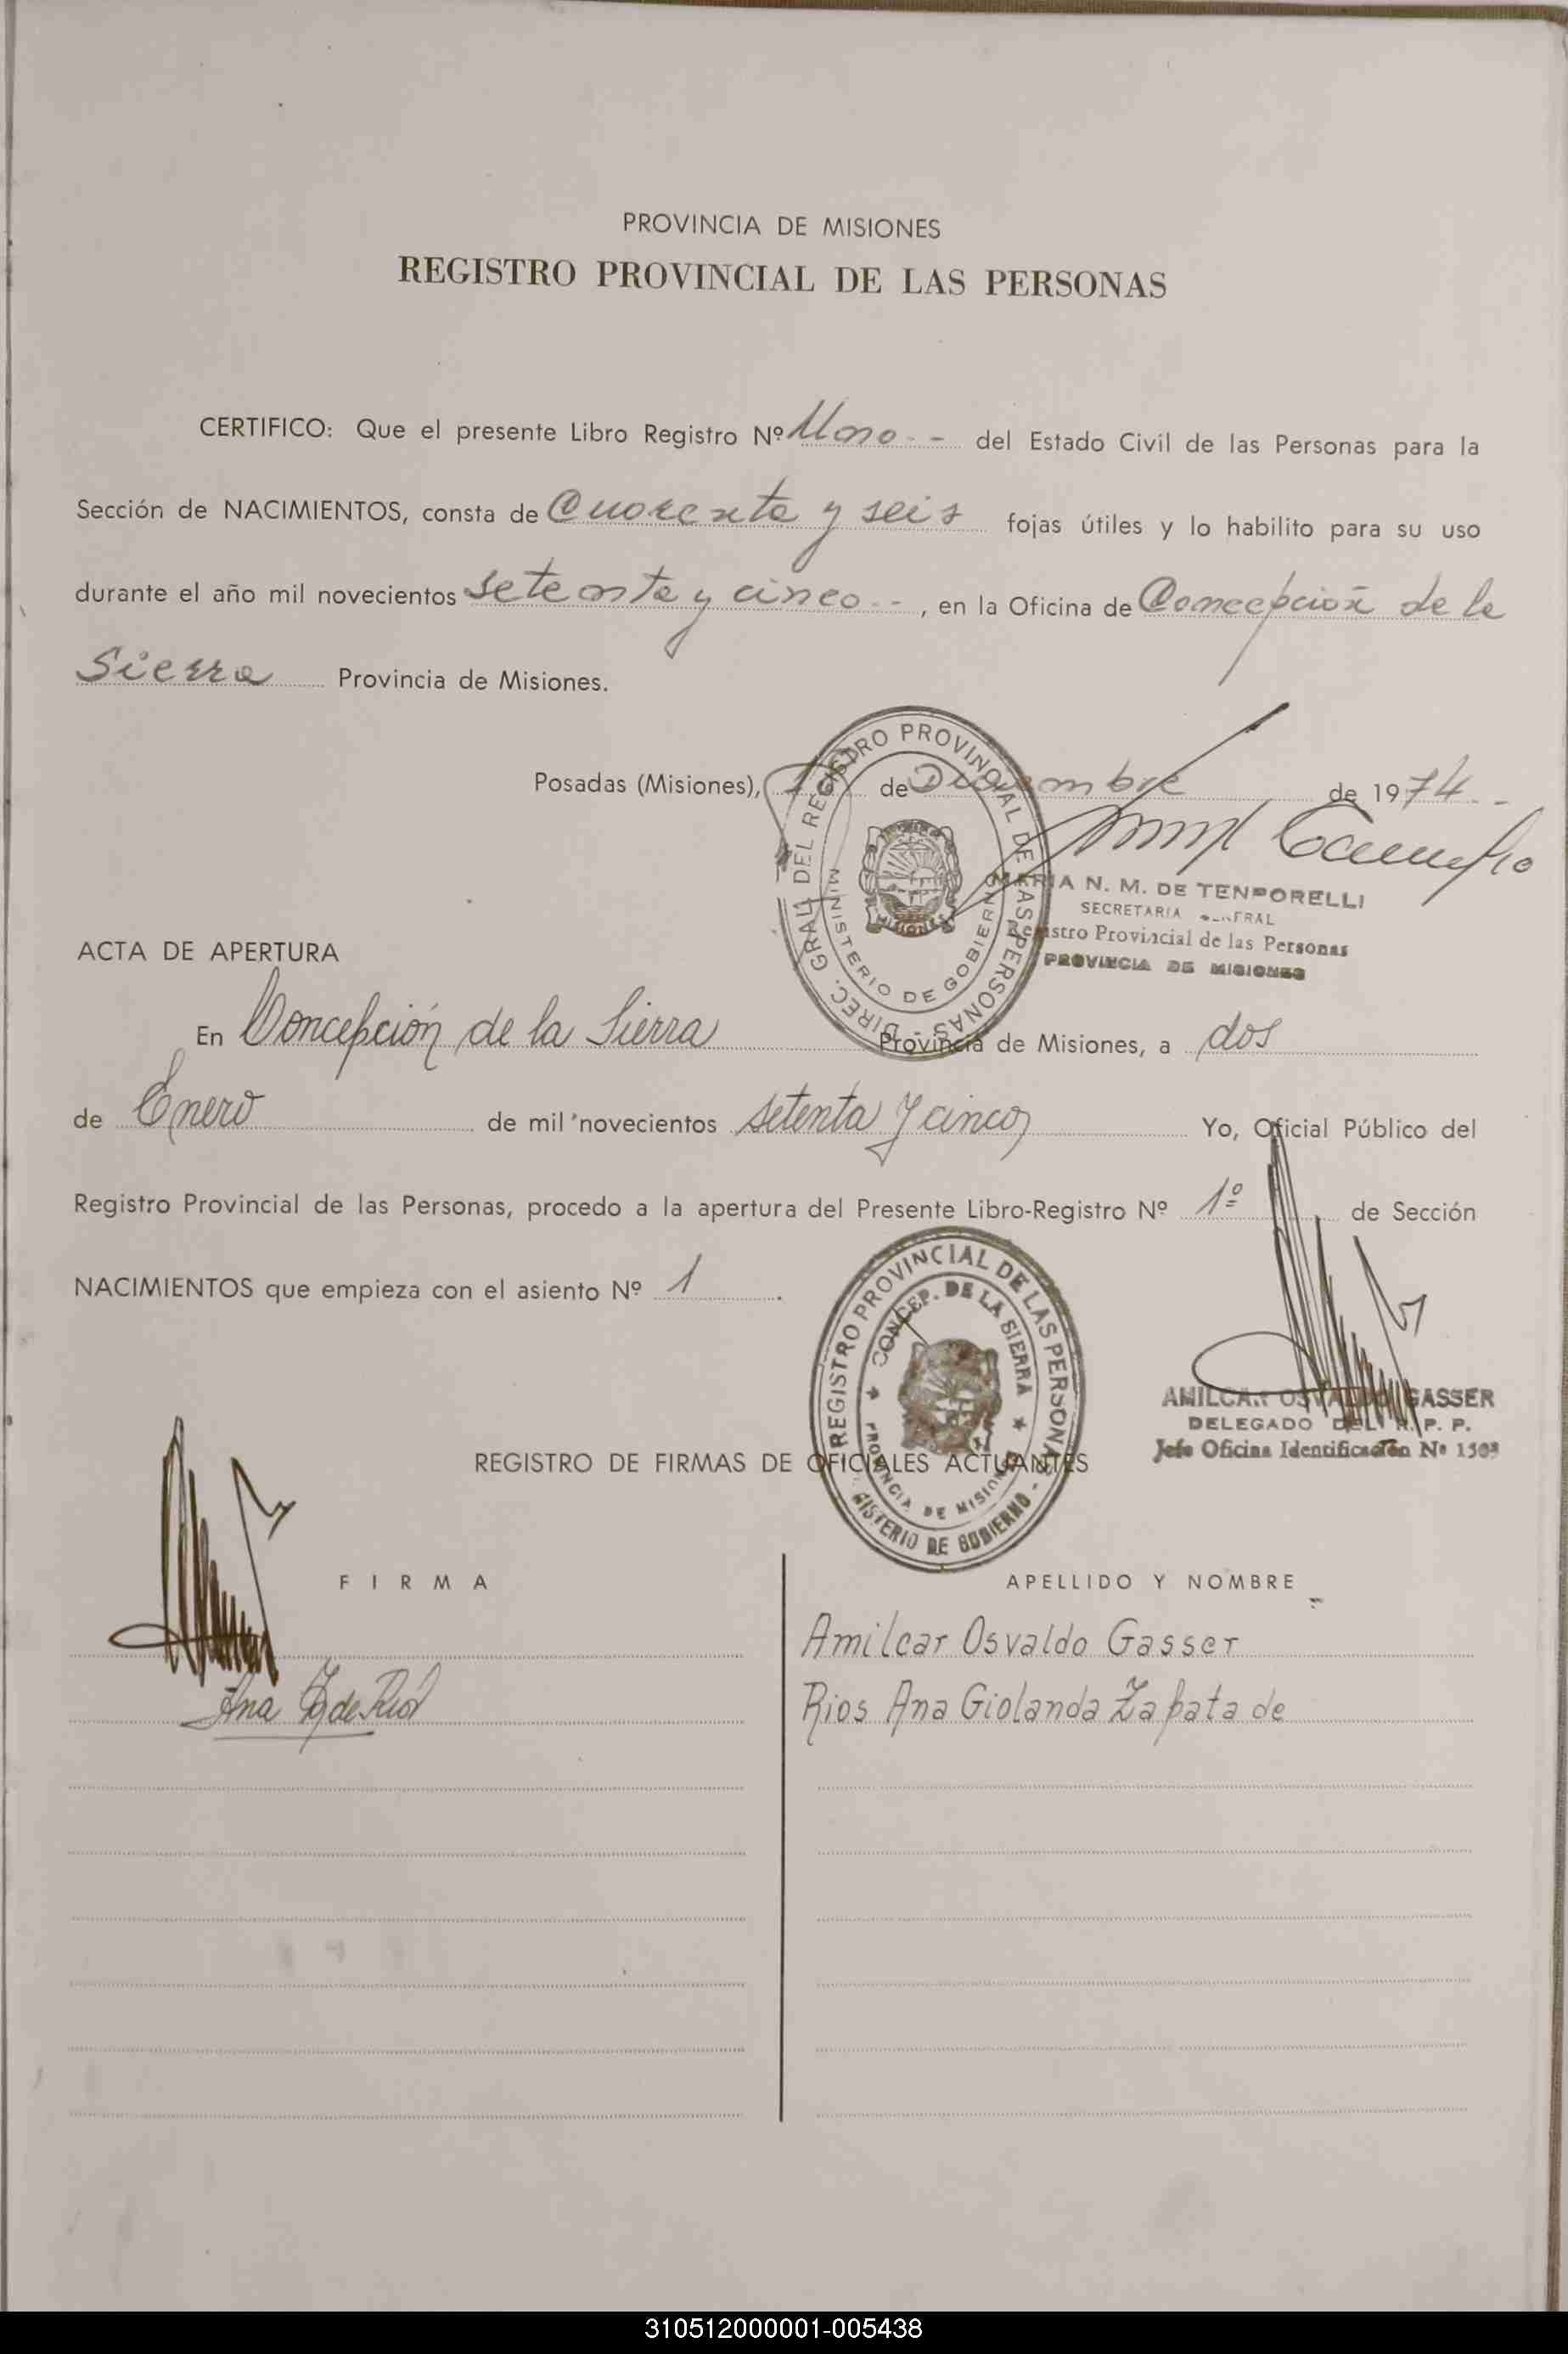 PROVINCIA DE MISIONES
REGISTRO PROVINCIAL DE LAS PERSONAS
CERTIFICO: Que el presente Libro Registro Nº Uno - - del Estado Civil de las Personas para la
Sección de NACIMIENTOS, consta de Cuarenta y seis fojas útiles y lo habilito para su uso
durante el año mil novecientos setenta y cinco - - , en la Oficina de Concepción de la
Sierra Provincia de Misiones.
Posadas (Misiones), de Diciembre de 1974 - -
DIREC. GRAL. DEL REGISTRO PROVINCIAL DE LAS PERSONAS -
MINISTERIO DE GOBIERNO
MISIONES
MARIA N. M. DE TENPORELLI
SECRETARIA GENERAL
Registro Provincial de las Personas
PROVINCIA DE MISIONES
ACTA DE APERTURA
En Concepción de la Sierra Provincia de Misiones, a dos
de Enero de mil novecientos setenta y cinco Yo, Oficial Público del
Registro Provincial de las Personas, procedo a la apertura del Presente Libro-Registro Nº 1º de Sección
NACIMIENTOS que empieza con el asiento Nº 1 .
REGISTRO PROVINCIAL DE LAS PERSONAS - MINISTERIO DE GOBIERNO -
CONCEP. DE LA SIERRA ★ PROVINCIA DE MISIONES ★
AMILCAR OSVALDO GASSER
DELEGADO DEL R. P. P.
Jefe Oficina Identificación Nº
REGISTRO DE FIRMAS DE OFICIALES ACTUANTES
FIRMA
APELLIDO Y NOMBRE
Amilcar Osvaldo Gasser
Ana Z. de Rios
Rios Ana Giolanda Zapata de
310512000001-005438